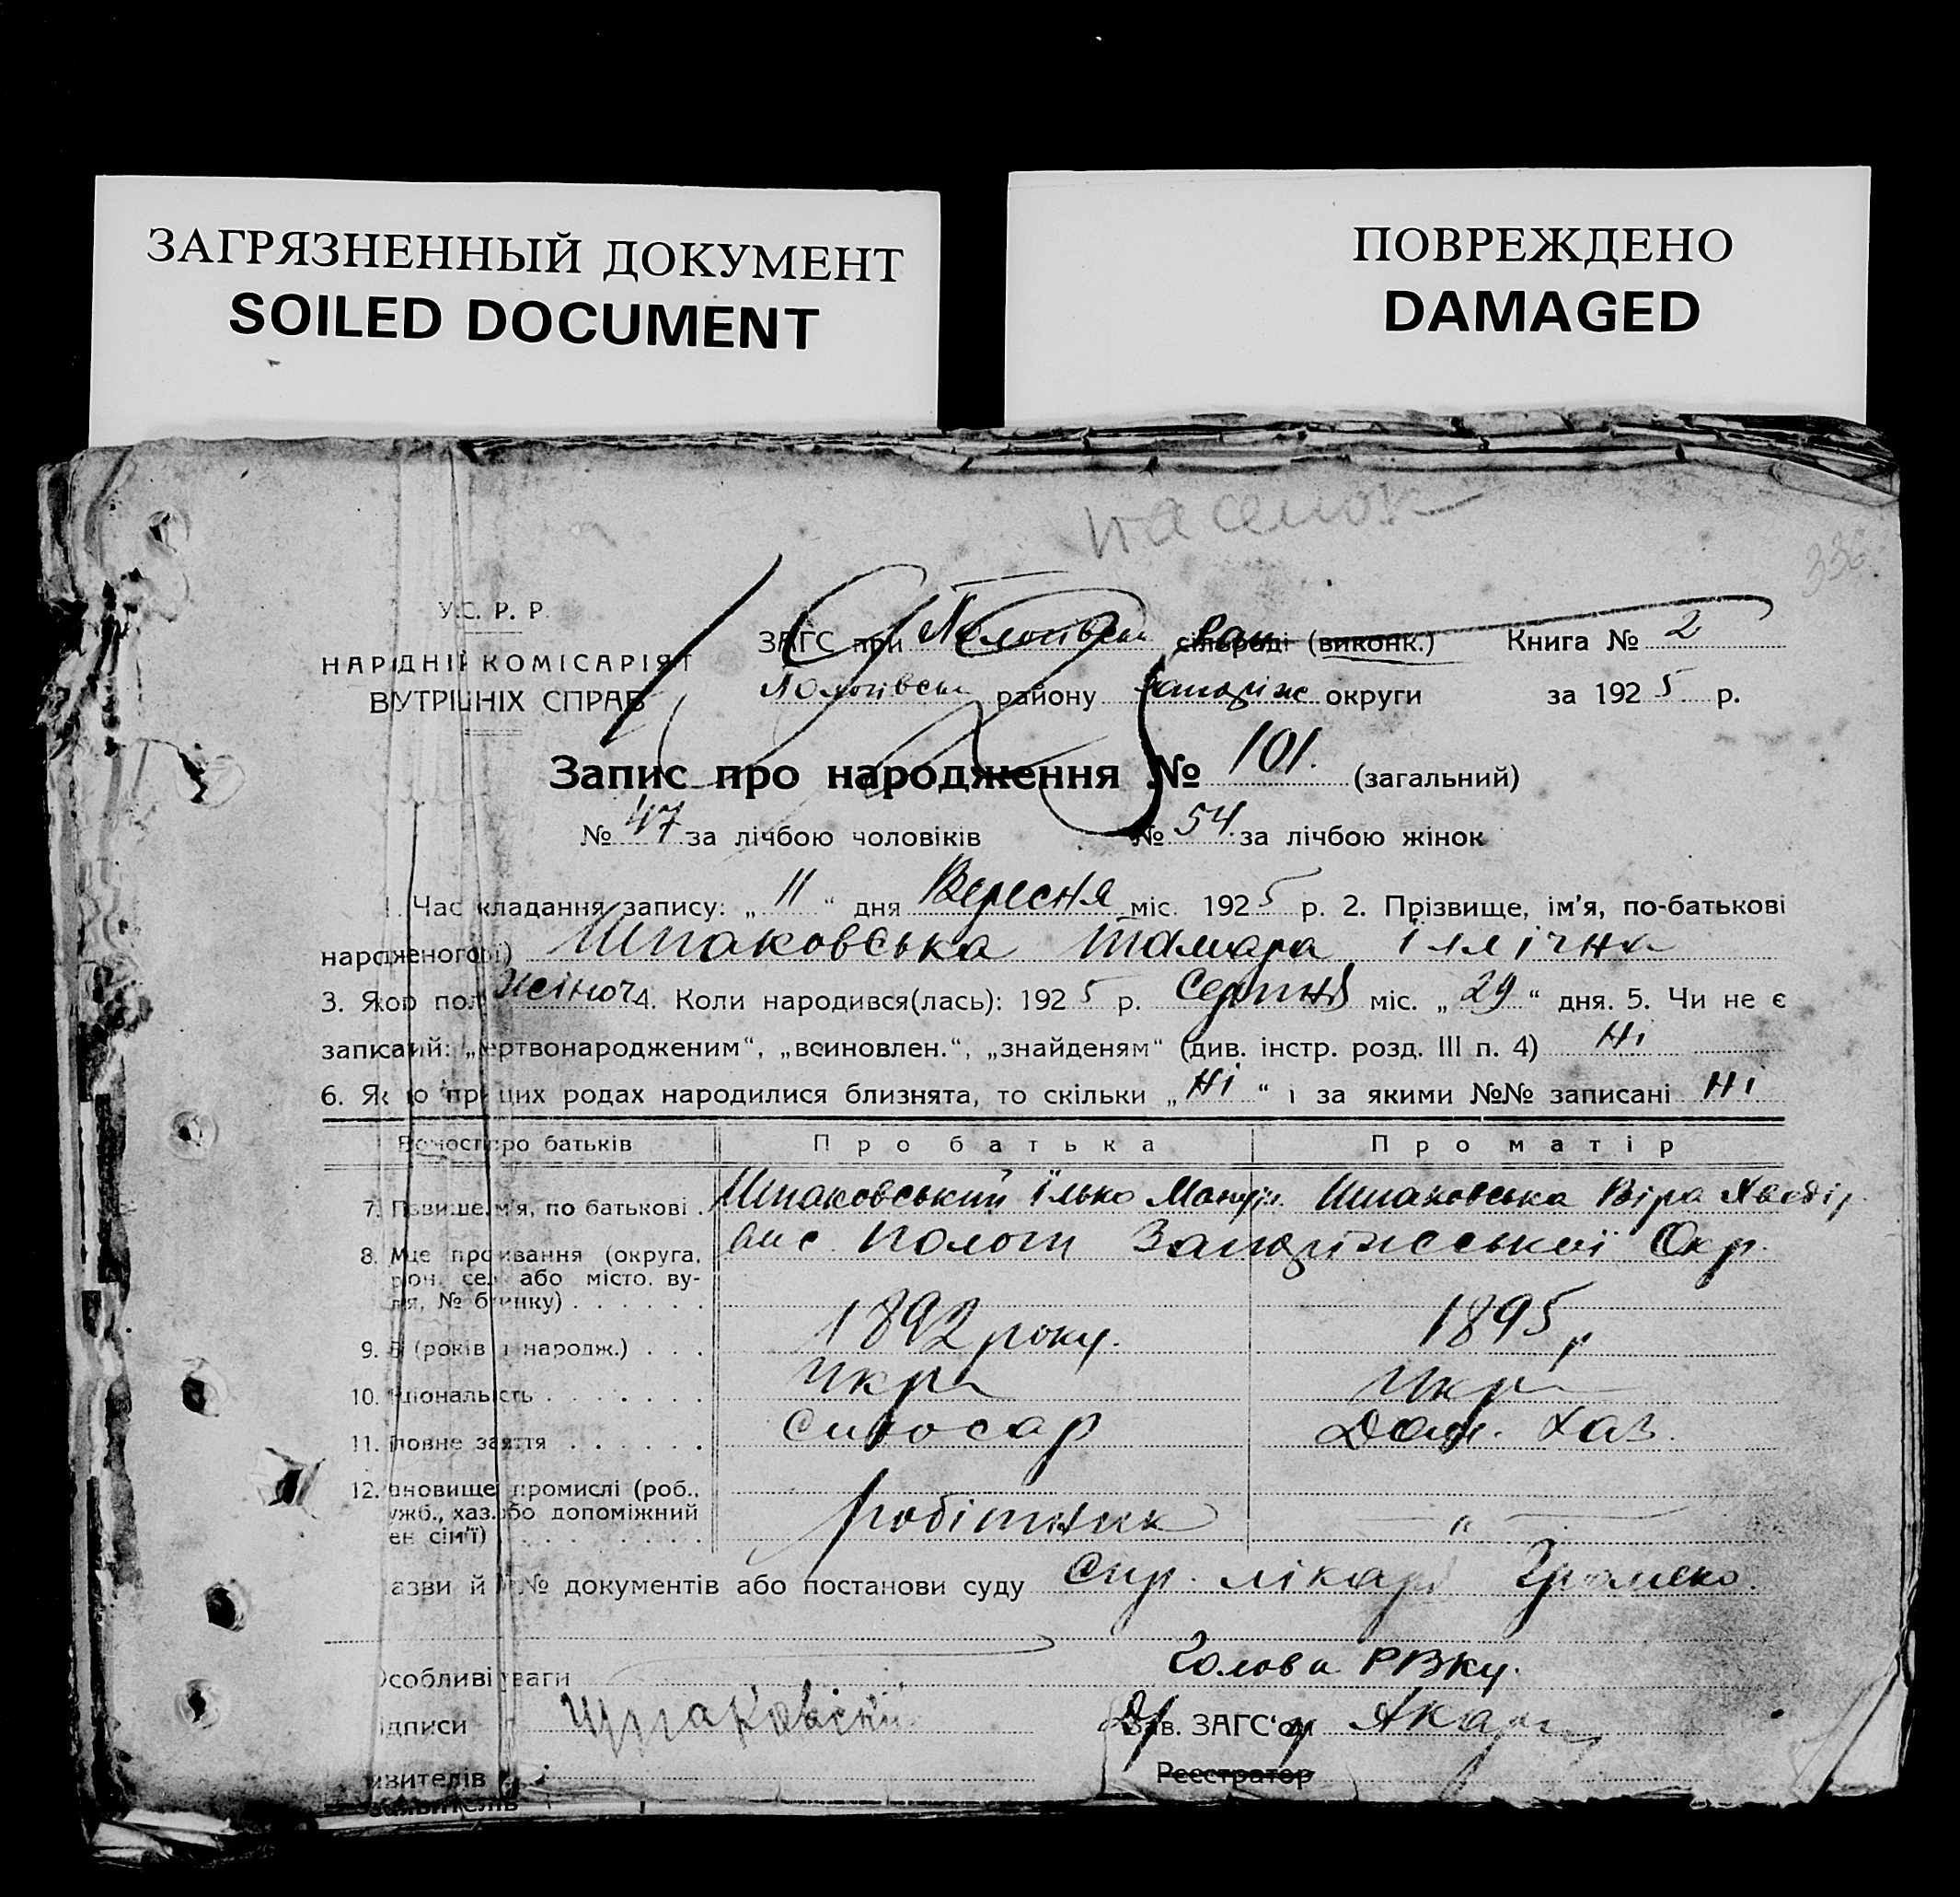 ЗАГРЯЗНЕННЫЙ ДОКУМЕНТ
SOILED DOCUMENT
ПОВРЕЖДЕНО
DAMAGED
336
У.С. Р. Р.
НАРОДНІЙ КОМІСАРІЯТ
ВНУТРІШНІХ СПРАВ
ЗАГС при Пологівськ сільраді (виконк.) Книга № 2
Пологівськ району Запоріж округи за 1925 р.
Запис про народження № 101. (загальний)
№ 47 за лічбою чоловіків № 54 за лічбою жінок
1. Час складання запису: „ 11 “ дня Вересня міс. 1925 р. 2. Прізвище, ім’я, по-батькові
народженого(ої) Шпаковська Тамара Іллічна
3. Якого полу жіноч 4. Коли народився(лась): 1925 р. Серпня міс. „ 29 “ дня. 5. Чи не є
записаний: „мертвонародженим“, „всиновлен.“, „знайденям“ (див. інстр. розд. III п. 4) Ні
6. Якщо при цих родах народилися близнята, то скільки „ Ні “ і за якими №№ записані Ні
Відомості про батьків Про батька Про матір
7. Прізвище, ім’я, по батькові Шпаковський Ілько Мануіл. Шпаковська Віра Хведір
8. Місце проживання (округа, пологи Запоріжської Окр.
район, село або місто, ву-
лиця, № будинку)
9. Вік (років і народж.) 1892 року. 1895 р
10. Національність Укра Укра
11. Головне заняття Слюсар Дом. хаз.
12. Становище в промислі (роб.,
служб., хаз. або допоміжний робітник "
член сім’ї)
Назви й №№ документів або постанови суду Спр. лікаря
Особливі уваги Голова РВКу.
Підписи Шпаковский Зав. ЗАГС’ом
заявителів Реєстратор
заявителів